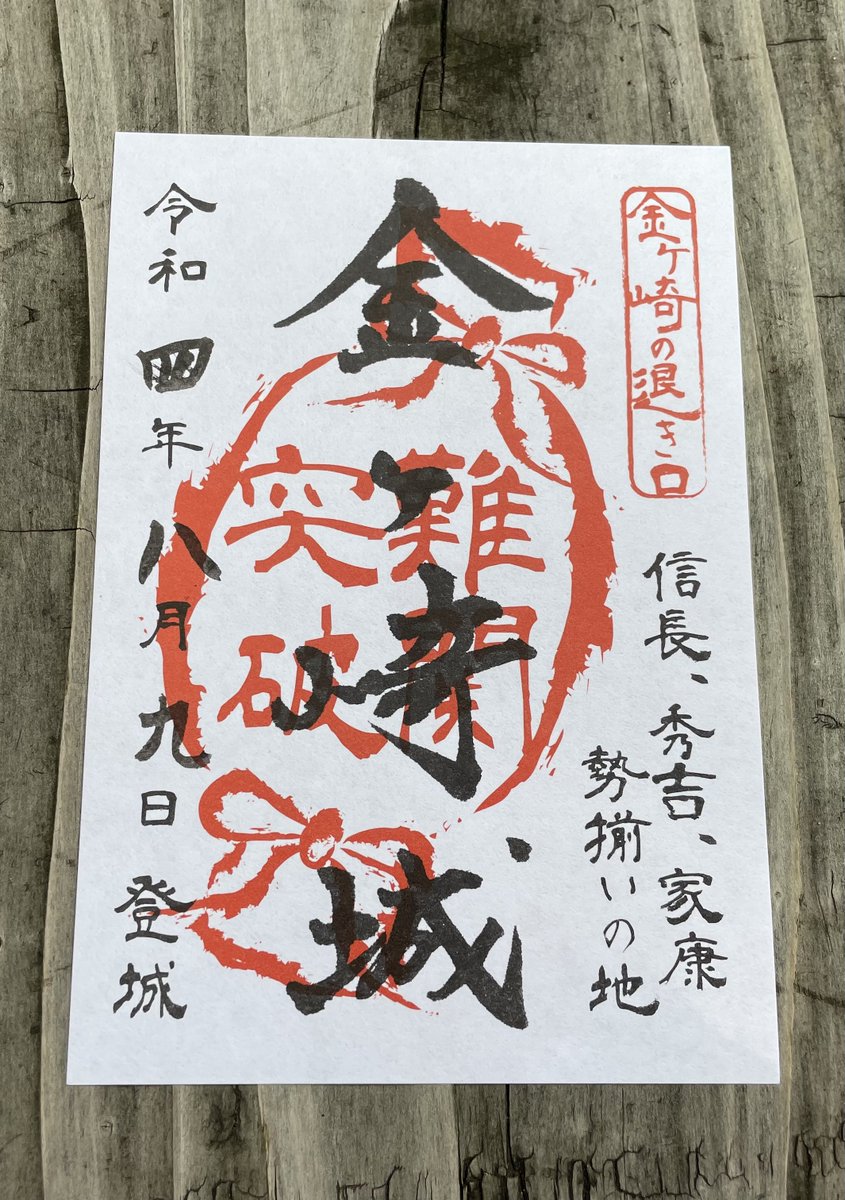 金ヶ崎の退き口
信長、秀吉、家康
勢揃いの地
金ヶ崎城
難関
突破
令和四年八月九日登城